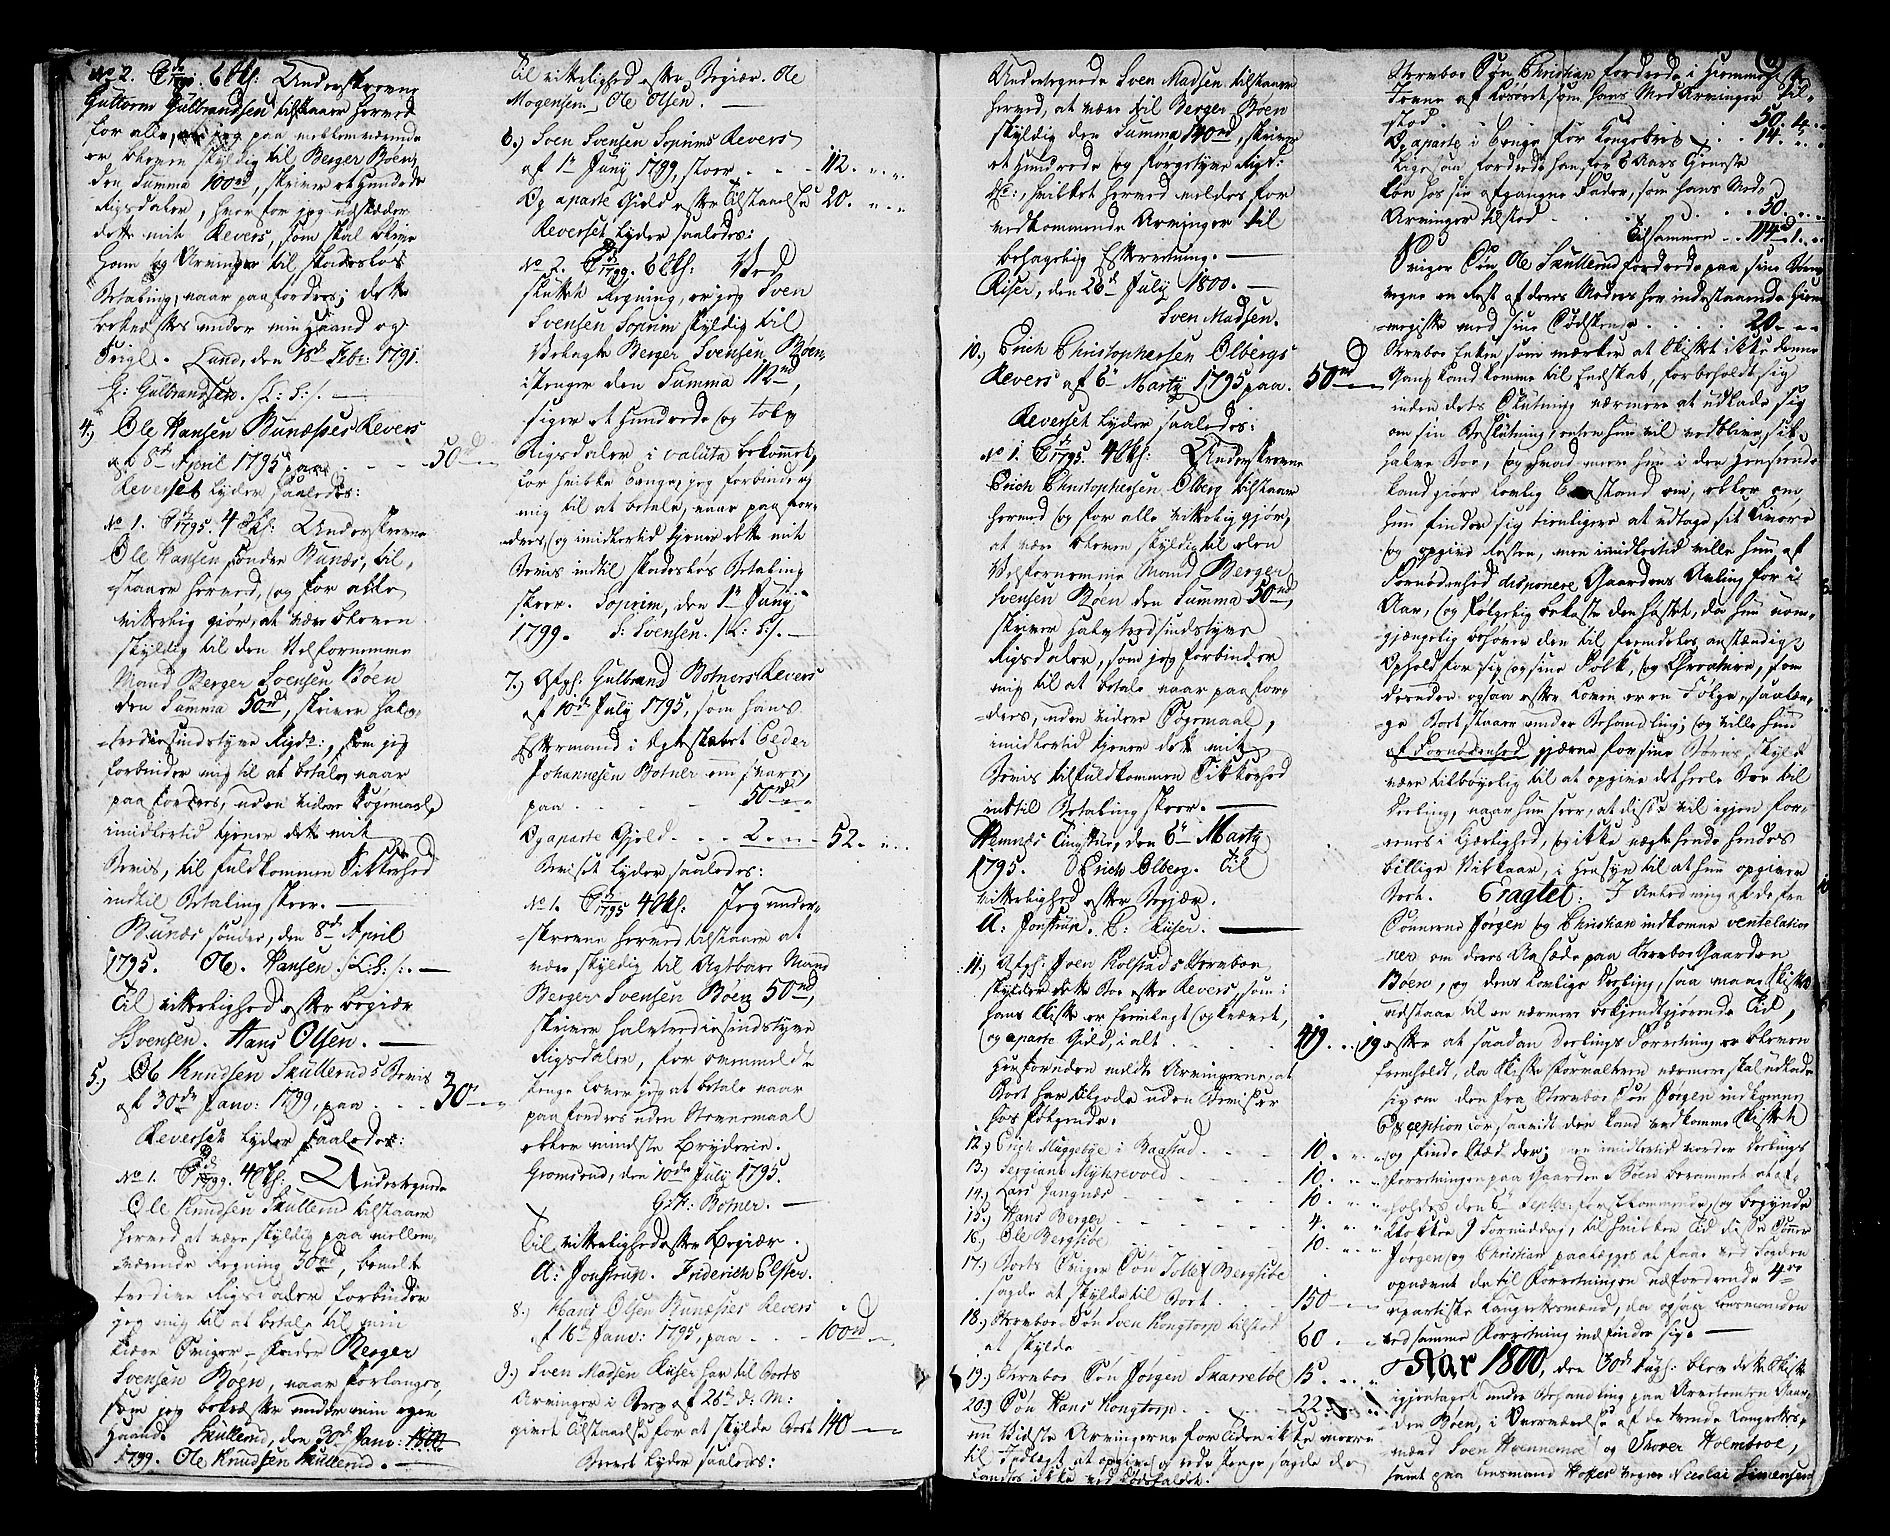 No 2. C 1790. 6 skl. Underskrevne
Guttorm Gulbrandsen tilstaaer herved
for alle, at jeg paa mellemværende
er bleven skyldig til Berger Bøen
den Summa 100 rd, skriver et Hundrede
Rigsdaler, hvorfor jeg udstæder
dette mit Revers, som skal blive
ham og Arvinger til skadesløs
Betaling, naar paafordres; dette
bekræftes under min Haand og
Seigl. Land, den Febr: 1791.
G: Gulbrandsen. /L: S:/.
4.) Ole Hansen Bunæsses Revers
af 8de April 1795 paa 50 rd
Reverset lyder saaledes:
No 1. C 1795. 4 skl: Underskrevne
Ole Hansen søndre Bunæs, til-
staaer herved, og for alle
vitterlig giør, at være bleven
skyldig til den Velfornemme
Mand Berger Svensen Bøen
den Summa 50 rd, skriver halv-
trediesindstyve Rigsd:, som jeg
forbinder mig til at betale, naar
paafordres, uden videre Søgemaal,
imidlertid tjener dette mit
Bevis, til fuldkommen Sikkerhed
indtil Betaling skeer.
Bunæs søndre, den 8de April
1795. Ole Hansen /L:S:/.
Til vitterlighed efter begiær
Svensen. Hans Olsen.
5.) Ole Knudsen Skulleruds Bevis
af 30de Janv: 1799, paa 30
Reverset lyder saaledes:
No 1. C 1799. 4 skl: Undertegnede
Ole Knudsen Skullerud tilstaaer
herved at være skyldig paa mellem-
værende Regning 30 rd, bemelte
tredive Rigsdaler forbinder
jeg mig til at betale til min
kiære Sviger-Fader Berger
Svensen Bøen, naar forlanges,
som jeg bekræfter under min egen
Haand. Skullerud, den 30de Janv: 1800
1799. Ole Knudsen Skullerud.
Til vitterlighed efter Begiær. Ole
Mogensen, Ole Olsen.
6.) Sven Svensen Soprims Revers
af 1te Juny 1799, stoer 112
Og aparte Gield efter Tilstaaelse 20
Reverset lyder saaledes:
No 2. C 1799. 6 skl: Ved
sluttet Regning, er jeg Sven
Svensen Soprim skyldig til
Velagte Berger Svensen Bøen
i penger den Summa 112 rd,
siger et Hundrede og tolv
Rigsdaler i valuta bekommet,
for hvilke Penge jeg forbinder
mig til at betale, naar paafor-
dres, og imidlertid tjener dette mit
Bevis indtil skadesløs Betaling
skeer. Soprim, den 1te Juny
1799. S: Svensen. /L: S:/.
7.) Afg: Gulbrand Botners Revers
af 10de July 1795, som hans
Eftermand i Egteskabet Peder
Johannesen Botner maa svare,
paa 50 rd
Og aparte Gjeld 2 52
Beviset lyder saaledes:
No 1. C 1795 4 skl: Jeg under-
skrevne herved tilstaaer at
være skyldig til Agtbare Mand
Berger Svensen Bøen 50 rd,
skriver halvtrediesindstyve
Rigsdaler, for ovenmeldte
Penge lover jeg at betale naar
paafordres uden Søgemaal
eller mindste Bryderie.
Gromsrud, den 10de July 1795.
G: H: Botner.
Til vitterlighed efter Begiær.
A: Jonstrup. Friderich Elster.
8.) Hans Olsen Bunæsses Revers
af 16de Janv: 1795, paa 100 rd
9.) Sven Madsen Riiser har til Boets
Arvinger i Brev af 26de d: M:
givet Tilstaaelse for at skylde Boet 140
Brevet lyder saaledes:
Undertegnede Sven Madsen tilstaaer
herved, at være til Berger Bøen
skyldig den Summa 140 rd, skriver
et Hundrede og førgetyve Rigs:
dl:, hvilket herved meldes for
vedkommende Arvinger til
behagelig Efterretning.
Riser, den 26de July 1800.
Sven Madsen.
10.) Erich Christophersen Ølbergs
Revers af 6te Marty 1795 paa 50 rd
Reverset lyder saaledes:
No 1. C 1795. 4 skl: Underskrevne
Erich Christophersen Ølberg tilstaaer
herved og for alle vitterlig gjør,
at være bleven skyldig til den
Velfornemme Mand Berger
Svensen Bøen den Summa 50 rd,
skriver halvtredsindstyve
Rigsdaler, som jeg forbinder
mig til at betale naar paafor-
dres, uden videre Søgemaal,
imidlertid tjener dette mit
Bevis til fuldkommen Sikkerhed
indtil Betaling skeer.
Hemnæs Tingstue, den 6te Marty
1795. Erich Ølberg. Til
vitterlighed efter Begiær.
A: Jonstrup. C: Riiser.
11.) Afg: Joen Kolstads Stervboe
skylder dette Boe efter Revers, som i
hans Skifte er fremlagt og krævet,
og aparte Gield, i alt 419 19
Herforuden meldte Arvingerne, at
Boet har tilgode uden Beviser
hos følgende:
12.) Erich Muggebye i Baastad 10
13.) Sergiant Myhrevold 10
14.) Lars Jungnæs 10
15.) Hans Berger 4
16.) Ole Bergsiøe 10
17.) Boets Sviger Søn Tollef Bergsiøe
sagde at skylde til Boet 150
18.) Stervboe Søn Sven Kongtorp tilstod
at skylde 60
19.) Stervboe Søn Jørgen Skarrebøl 15
20.) Søn Hans Kongtorp 22
nu vidste Arvingerne for Tiden ikke meere
til Indtægt at opgive, og rede Penge sagde de
fandtes ikke ved Dødsfaldet.
Stervboe Søn Christian fordrede i Hjemmegifte
som hans Med Arvinger til-
stod 50. 4.
Og aparte i Penge for Kongebrev 14
Ligesom fordrede han for 6 Aars Tjeneste
løn hos sin afgangne Fader, som hans Med-
Arvinger tilstod 50
Tilsammen 114 1
Sviger Søn Ole Skullerud fordrede paa sine Børns
vegne en Rest af deres Moders her indestaaende Hiem-
megifte med sine Sødskende 20
Stervboe Enken som mærker at Skiftet ikke denne
Gang kand komme til Endskab, forbeholdt sig
inden dets Slutning nærmere at udlade sig
om sin Beslutning, enten hun vil vedblive sit
halve Boe, og hvad meere hun i den Henseende
kand giøre lovlig Paastand om, eller om
hun finder sig tienligere at udtage sit Livøre
og opgive Resten, men imidlertid ville hun af
Fornødenhed disponere Gaardens Avling for i
Aar, og følgelig bekoste den høstet, da hun uom-
gjængelig behøver den til fremdeles anstændig
Ophold for sig og sine Folk, og Creature, som
desuden ogsaa efter Loven er en Følge, saalæn-
ge Boet staaer under Behandling; og ville hun
af Fornødenhed gjerne for sine Børns Skyld
være tilbøyelig til at opgive det heele Boe til
Deeling, naar hun seer, at disse vil igjen for-
eenes i Kjærlighed, og ikke nægte hende hendes
billige Vilkaar, i Hensyn til at hun opgiver
Boet. Eragtet: I Anledning af de fra
Sønnerne Jørgen og Christian indkomne ventelation-
ner om deres Aasæde paa Stervboe Gaarden
Bøen, og dens lovlige Deeling, saa maae Skiftet
udstaae til en nærmere bekjendtgjørende Tid,
efter at saadan Deelings Forretning er bleven
fremholdt, da Skifte Forvalteren nærmere skal udlade
sig om den fra Stervboe Søn Jørgen indkomne
Exception forsaavidt den kand vedkomme Skiftet
og finde Sted der; men imidlertid vorder Deelings
Forretningen paa Gaarden Bøen berammet at af-
holdes den 6te Septbr: førstkommende, og begynde
Klokken 9 Formiddag, til hvilken Tid disse Sønner
Jørgen og Christian paalægges at faae ved Fogden
opnævnt de til Forretningen udfordrende 4re
upartiske Laugrettesmænd, da ogsaa Lensmanden
ved samme Forretning indfinder sig.
Aar 1800, den 30de Aug: blev dette Skifte
igjentaget under Behandling paa Arvetomten Gaar-
den Bøen, i Overværelse af de tvende Laugrettes-
mænd Sven Hvinnemoe og Thover Holmbroe,
samt paa Lensmand Holtes vegne Nicolai Simensen